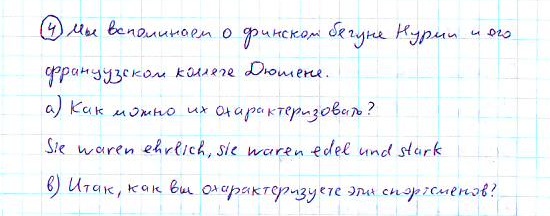 ④ Мы вспоминаем о финском бегуне Нурми и его
французском коллеге Дюшене.
а) Как можно их охарактеризовать?
Sie waren ehrlich, sie waren edel und stark
в) Итак, как вы охарактеризуете этих спортсменов?